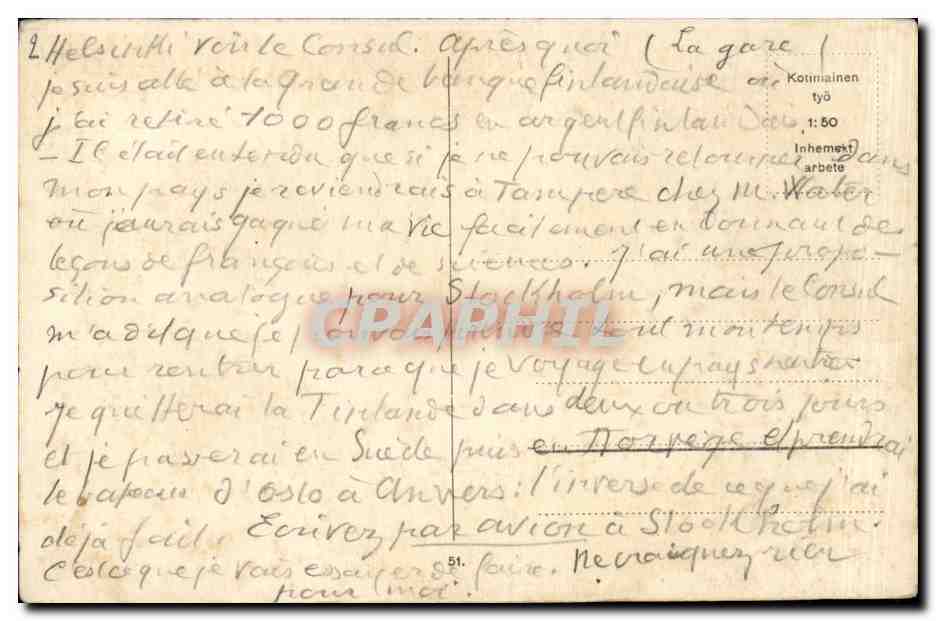 2 Helsinki voir le Consul. Après quoi (La gare)
je suis allé à la grande banque finlandaise où
j'ai retiré 1000 francs en argent finlandais.
– Il était entendu que si je ne pouvais retourner dans
mon pays je reviendrais à Tampere chez M. Hater
où j'aurais gagné ma vie facilement en donnant des
leçons de français et de sciences. J'ai une propo–
sition analogue pour Stockholm, mais le Consul
m'a dit que je pouvais prendre tout mon temps
pour rentrer parce que je voyage en pays neutre
Je quitterai la Finlande dans deux ou trois jours
et je passerai en Suède puis en Norvège et prendrai
le bateau d'Oslo à Anvers : l'inverse de ce que j'ai
déjà fait. Ecrivez par avion à Stockholm.
C'est ce que je vais essayer de faire. Ne craignez rien
pour moi.
Kotimainen
työ
1:50
Inhemskt
arbete
51.
CPAPHIL